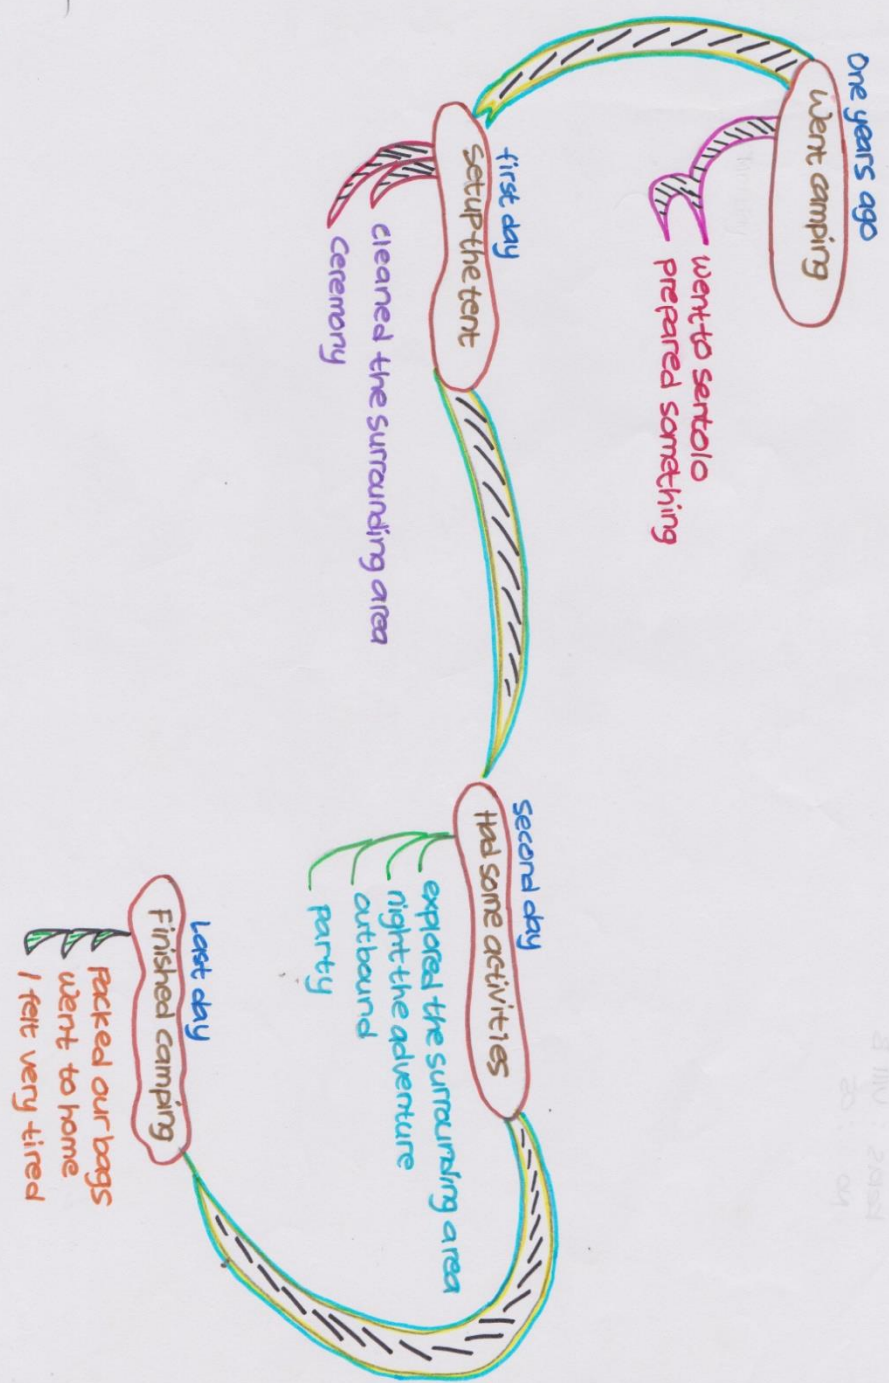 One years ago
Went camping
went to sentolo
prepared something
first day
setup the tent
cleaned the surrounding area
ceremony
second day
Had some activities
explored the surrounding area
night the adventure
outbound
party
Last day
Finished camping
packed our bags
went to home
I felt very tired